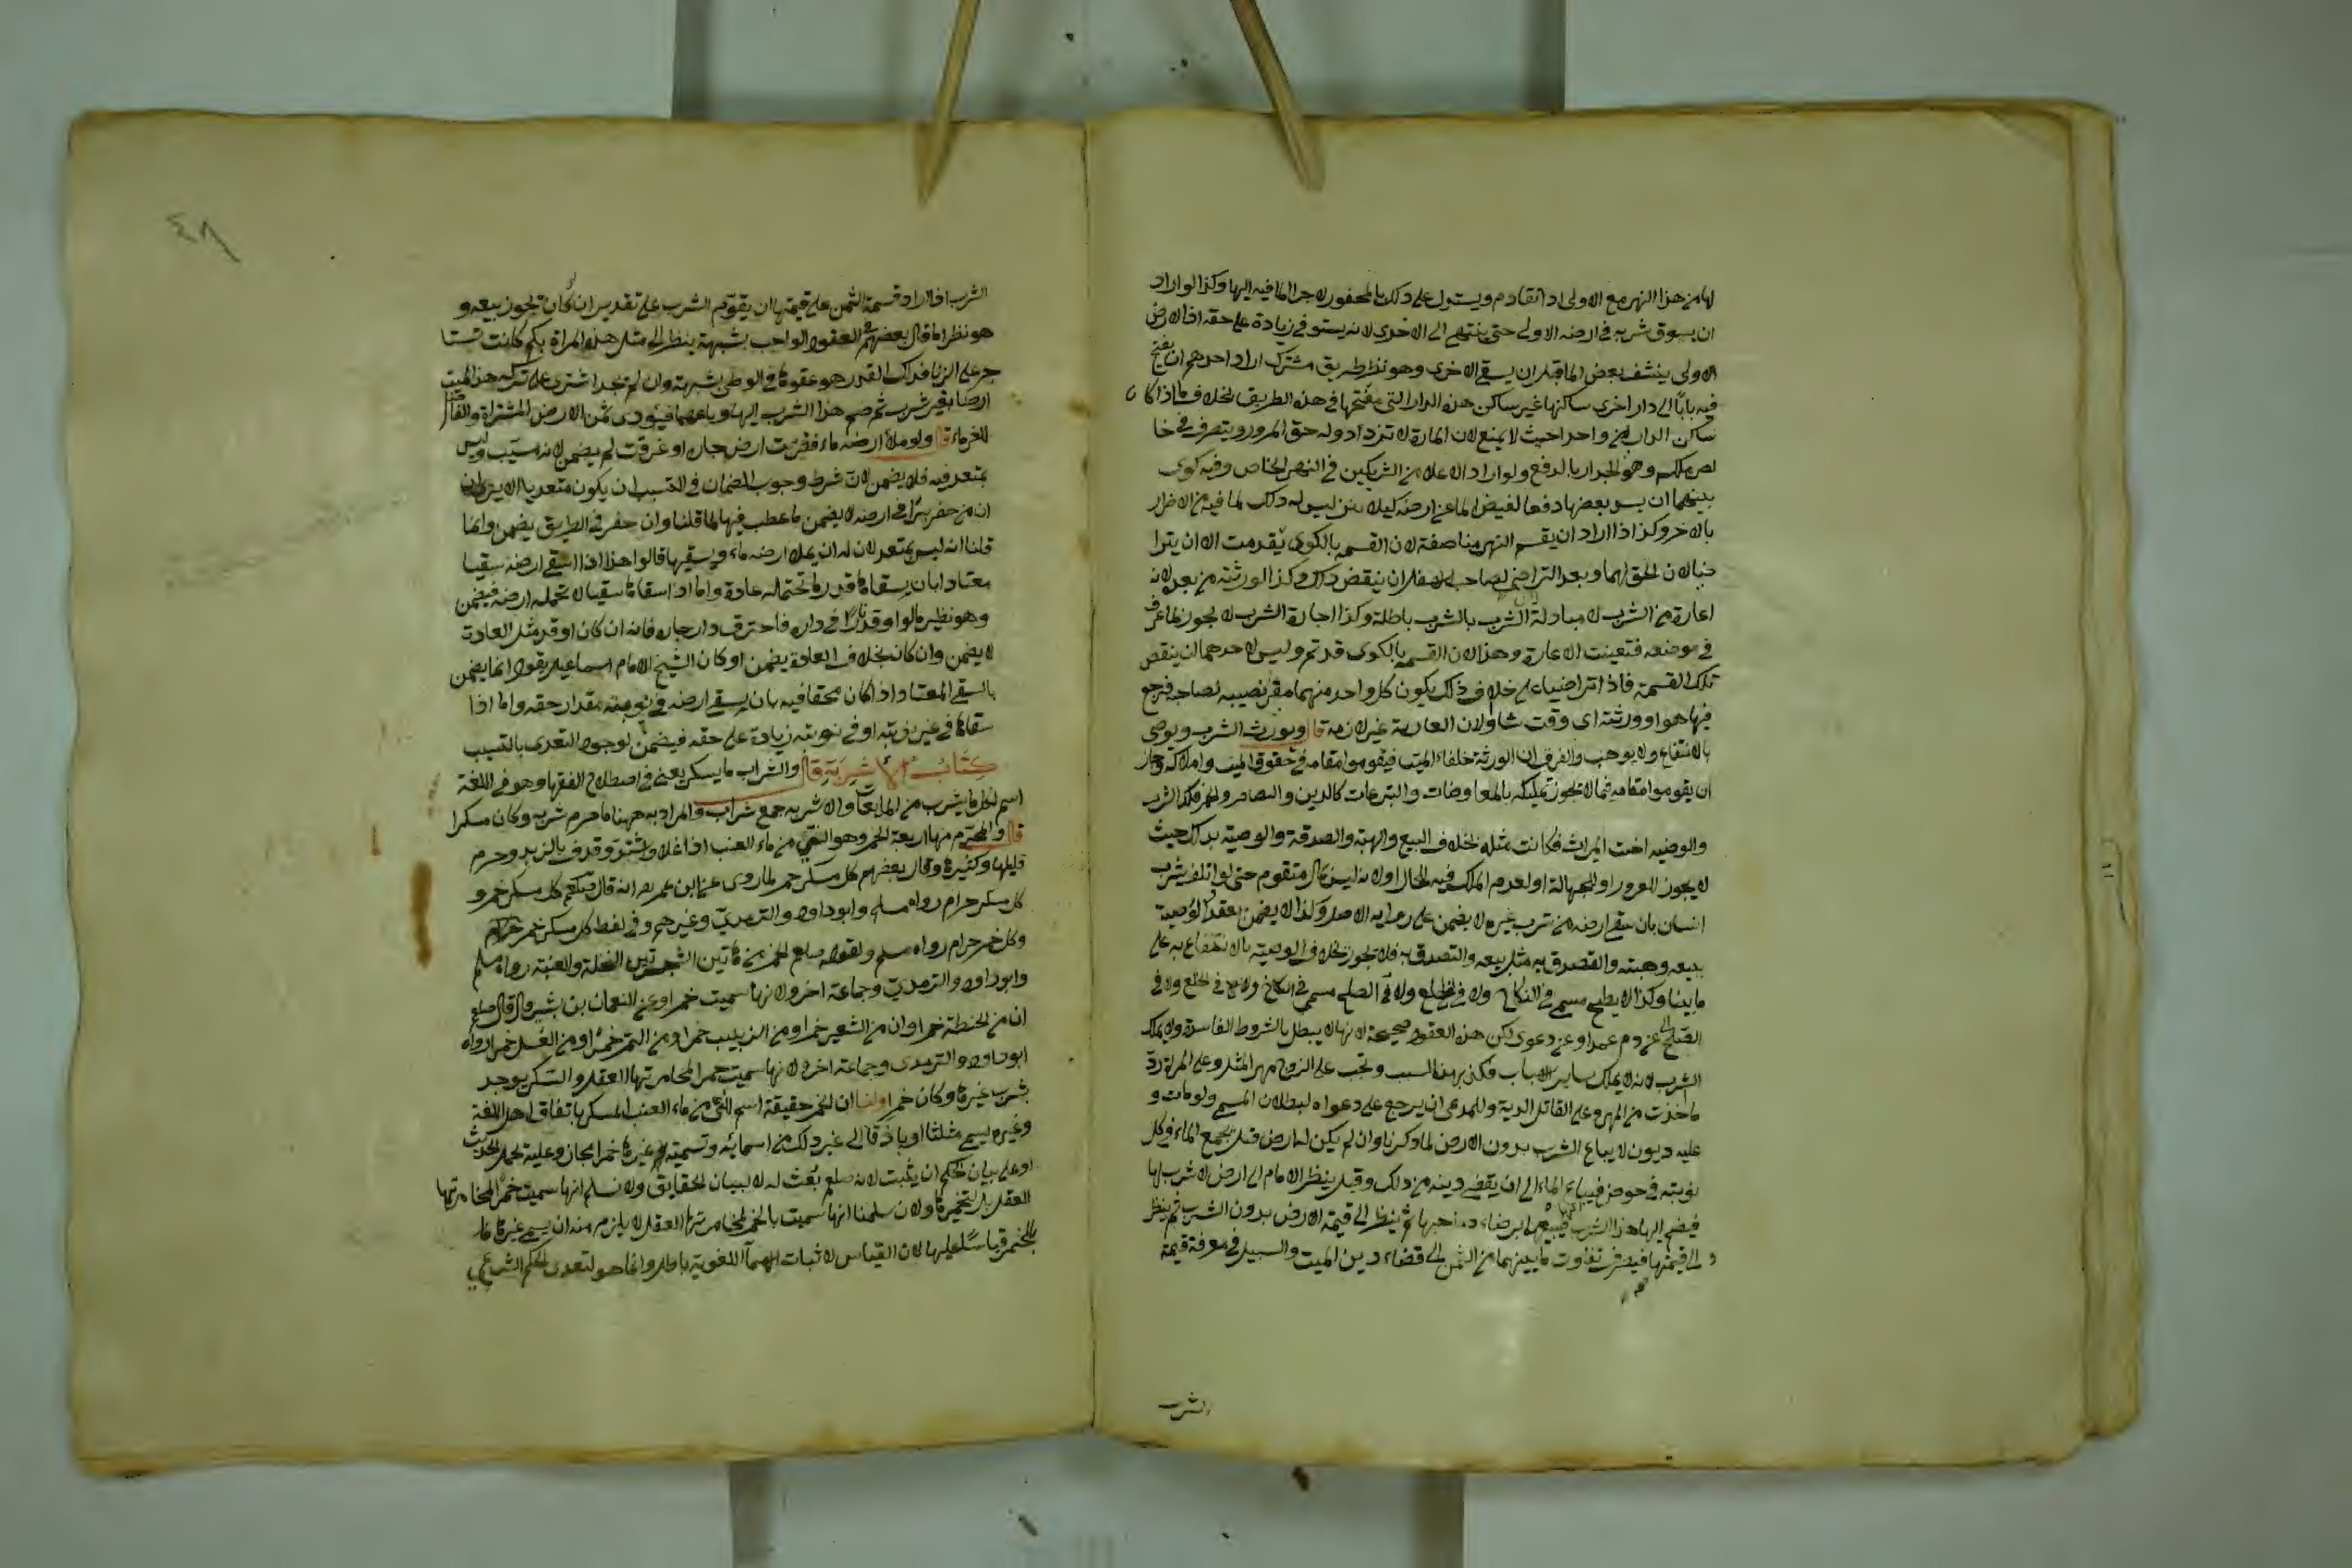 لها من هذا النهر مع الاولى اذا تقادم ويستدل على ذلك بالمحفور لاجرا الما فيه اليها وكذا لو اراد
ان يسوق شربه في ارضه الاولى حتى ينتهي الى الاخرى لانه يستوفي زيادة على حقه اذ الارض
الاولى ينشف بعض الما قبل ان يسقي الاخرى وهو نظير طريق مشترك اراد احدهم ان يفتح
فيه بابا الى دار اخرى ساكنها غير ساكن هذه الدار التي مفتحها في هذه الطريق بخلاف ما اذا كان
ساكن الدارين واحدا حيث لا يمنع لان المارة لا تزداد وله حق المرور ويتصرف في خا
لص ملكه وهو الجدار بالرفع ولو اراد الاعلا من الشريكين في النهر الخاص وفيه كوى
بينهما ان يسد بعضها دفعا لفيض الما عن ارضه كيلا تنز ليس له ذلك لما فيه من الاضرار
بالاخر وكذا اذا اراد ان يقسم النهر مناصفة لان القسمة بالكوى تقدمت الا ان يترا
ضيا لان الحق لهما وبعد التراضي لصاحب الاسفل ان ينقض ذلك وكذا لورثته من بعده لانه
اعارة من الشرب لا مبادلة الشرب بالشرب باطلة وكذا اجارة الشرب لا يجوز لما عرف
في موضعه فتعينت الاعارة وهذا لان القسمة بالكوى قد تم وليس لاحدهما ان ينقض
تلك القسمة فاذا تراضيا على خلاف ذلك يكون كل واحد منهما معيرا نصيبه لصاحبه فيرجع
فيها هو او ورثته اى وقت شاء ولان العارية غير لازمة قال ويورث الشرب ويوصى
بالانتفاع ولا يوهب والفرق ان الورثة خلفاء الميت فيقوموا مقامه في حقوق الميت واملاكه وجاز
ان يقوموا مقامه فيما لا يجوز تمليكه بالمعاوضات والتبرعات كالدين والقصاص والخمر فكذا الشرب
والوصية اخت الميراث فكانت مثله بخلاف البيع والهبة والصدقة والوصية بذلك حيث
لا يجوز للغرور او للجهالة او لعدم الملك فيه للحال او لانه ليس بمال متقوم حتى لو اتلف شرب
انسان بان سقى ارضه من شرب غيره لا يضمن على رواية الاصل وكذا لا يضمن بعقد الوصية
ببيعه وهبته والتصدق به مثل بيعه والتصدق به فلا تجوز بخلاف الوصية بالانتفاع به على
ما بينا وكذا لا يصلح مسمى في النكاح ولا في الخلع ولا في الصلح
الصلح عن دم عمد او عن دعوى لكن هذه العقود صحيحة لانها لا يبطل بالشروط الفاسدة ولا يملك
الشرب لانه لا يملك بساير الاسباب فكذا بهذا السبب وتجب على الزوج مهر المثل وعلى المراة رد
ما اخذت من المهر وعلى القاتل الدية وللمدعي ان يرجع على دعواه لبطلان المسمى ولو مات و
عليه ديون لا يباع الشرب بدون الارض لما ذكرنا وان لم يكن له ارض قيل يجمع الماء في كل
نوبته في حوض فيباع الماء الى ان يقضى دينه من ذلك وقيل ينظر الامام الى ارض لا شرب لها
فيضم اليها هذا الشرب فيبيعهما برضاء صاحبها ثم ينظر الى قيمة الارض بدون الشرب ثم ينظر
الى قيمتها فيصرف تفاوت ما بينهما من الثمن الى قضاء دين الميت والسبيل في معرفة قيمة
الشرب
٤٨
الشرب اذا اراد قسمة الثمن على قيمتها ان يقوم الشرب على تقدير ان لو كان تجوز بيعه و
هو نظير ما قال بعضهم في العقر الواجب بشبهة ينظر الى مثل هذه المراة بكم كانت تستا
جر على الزنا فذلك القدر هو عقرها في الوطئ بشبهة وان لم يجد اشترى على تركة هذا الميت
ارضا بغير شرب ثم ضم هذا الشرب اليها وباعهما فيؤدى ثمن الارض المشتراة والفاضل
للغرماء قال ولو ملأ ارضه ماء فنزت ارض جاره او غرقت لم يضمن لانه مسبب وليس
بمتعد فيه فلا يضمن لان شرط وجوب الضمان في التسبب ان يكون متعديا الا يرى
ان من حفر بئرا في ارضه لا يضمن ما عطب فيها لما قلنا وان حفر في الطريق يضمن وانما
قلنا انه ليس بمتعد لان له ان يملا ارضه ماء ويسقيها قالوا هذا اذا سقى ارضه سقيا
معتادا بان يسقاها قدر ما تحتمله عادة واما اذا سقاها سقيا لا تحمله ارضه فيضمن
وهو نظير ما لو اوقد نارا في داره فاحترق دار جاره فانه ان كان اوقد مثل العادة
لا يضمن وان كان بخلاف العادة يضمن وكان الشيخ الامام اسماعيل يقول انما يضمن
بالسقي المعتاد اذا كان محقا فيه بان يسقي ارضه في نوبته مقدار حقه واما اذا
سقاها في غير نوبته او في نوبته زيادة على حقه فيضمن لوجود التعدى بالتسبب
كتاب الاشربة قال والشراب ما يسكر يعني في اصطلاح الفقها وهو في اللغة
اسم لكل ما يشرب من المايعات والاشربه جمع شراب والمراد به ههنا ما حرم شربه وكان مسكرا
قال والمحرم منها اربعة الخمر وهو النيئ من ماء العنب اذا غلا واشتد وقذف بالزبد وحرم
قليلها وكثيرها وقال بعضهم كل مسكر خمر لما روى عن ابن عمر رض انه قال صلعم كل مسكر خمر و
كل مسكر حرام رواه مسلم وابو داود والترمذي وغيرهم وفي لفظ كل مسكر خمر
وكل خمر حرام رواه مسلم ولقوله صلعم الخمر من هاتين الشجرتين النخلة والعنبة رواه مسلم
وابو داود والترمذي وجماعة اخر ولانها سميت خمرا وعن النعمان بن بشير قال قال صلعم
ان من الحنطة خمرا وان من الشعير خمرا ومن الزبيب خمرا ومن التمر خمرا ومن العسل خمرا رواه
ابو داود والترمذى وجماعة اخر ولانها سميت خمرا لمخامرتها العقل والسكر يوجد
بشرب غيرها وكان خمرا ولنا ان الخمر حقيقة اسم للنيئ من ماء العنب المسكر باتفاق اهل اللغة
وغيره يسمى مثلثا او باذقا الى غير ذلك من اسمائه وتسمية غيرها خمرا مجاز وعليه يحمل الحديث
او على بيان الحكم ان يثبت لانه صلعم بعث له لا لبيان الحقايق ولا نسلم انها سميت خمرا لمخامرتها
العقل بل لتخمرها ولان سلمنا انها سميت بالخمر لمخامرتها العقل لا يلزم منه ان يسمى غيرها
بالخمر قياسا عليها لان القياس لاثبات الاسمآ اللغوية باطل وانما هو لتعدى الحكم الشرعي